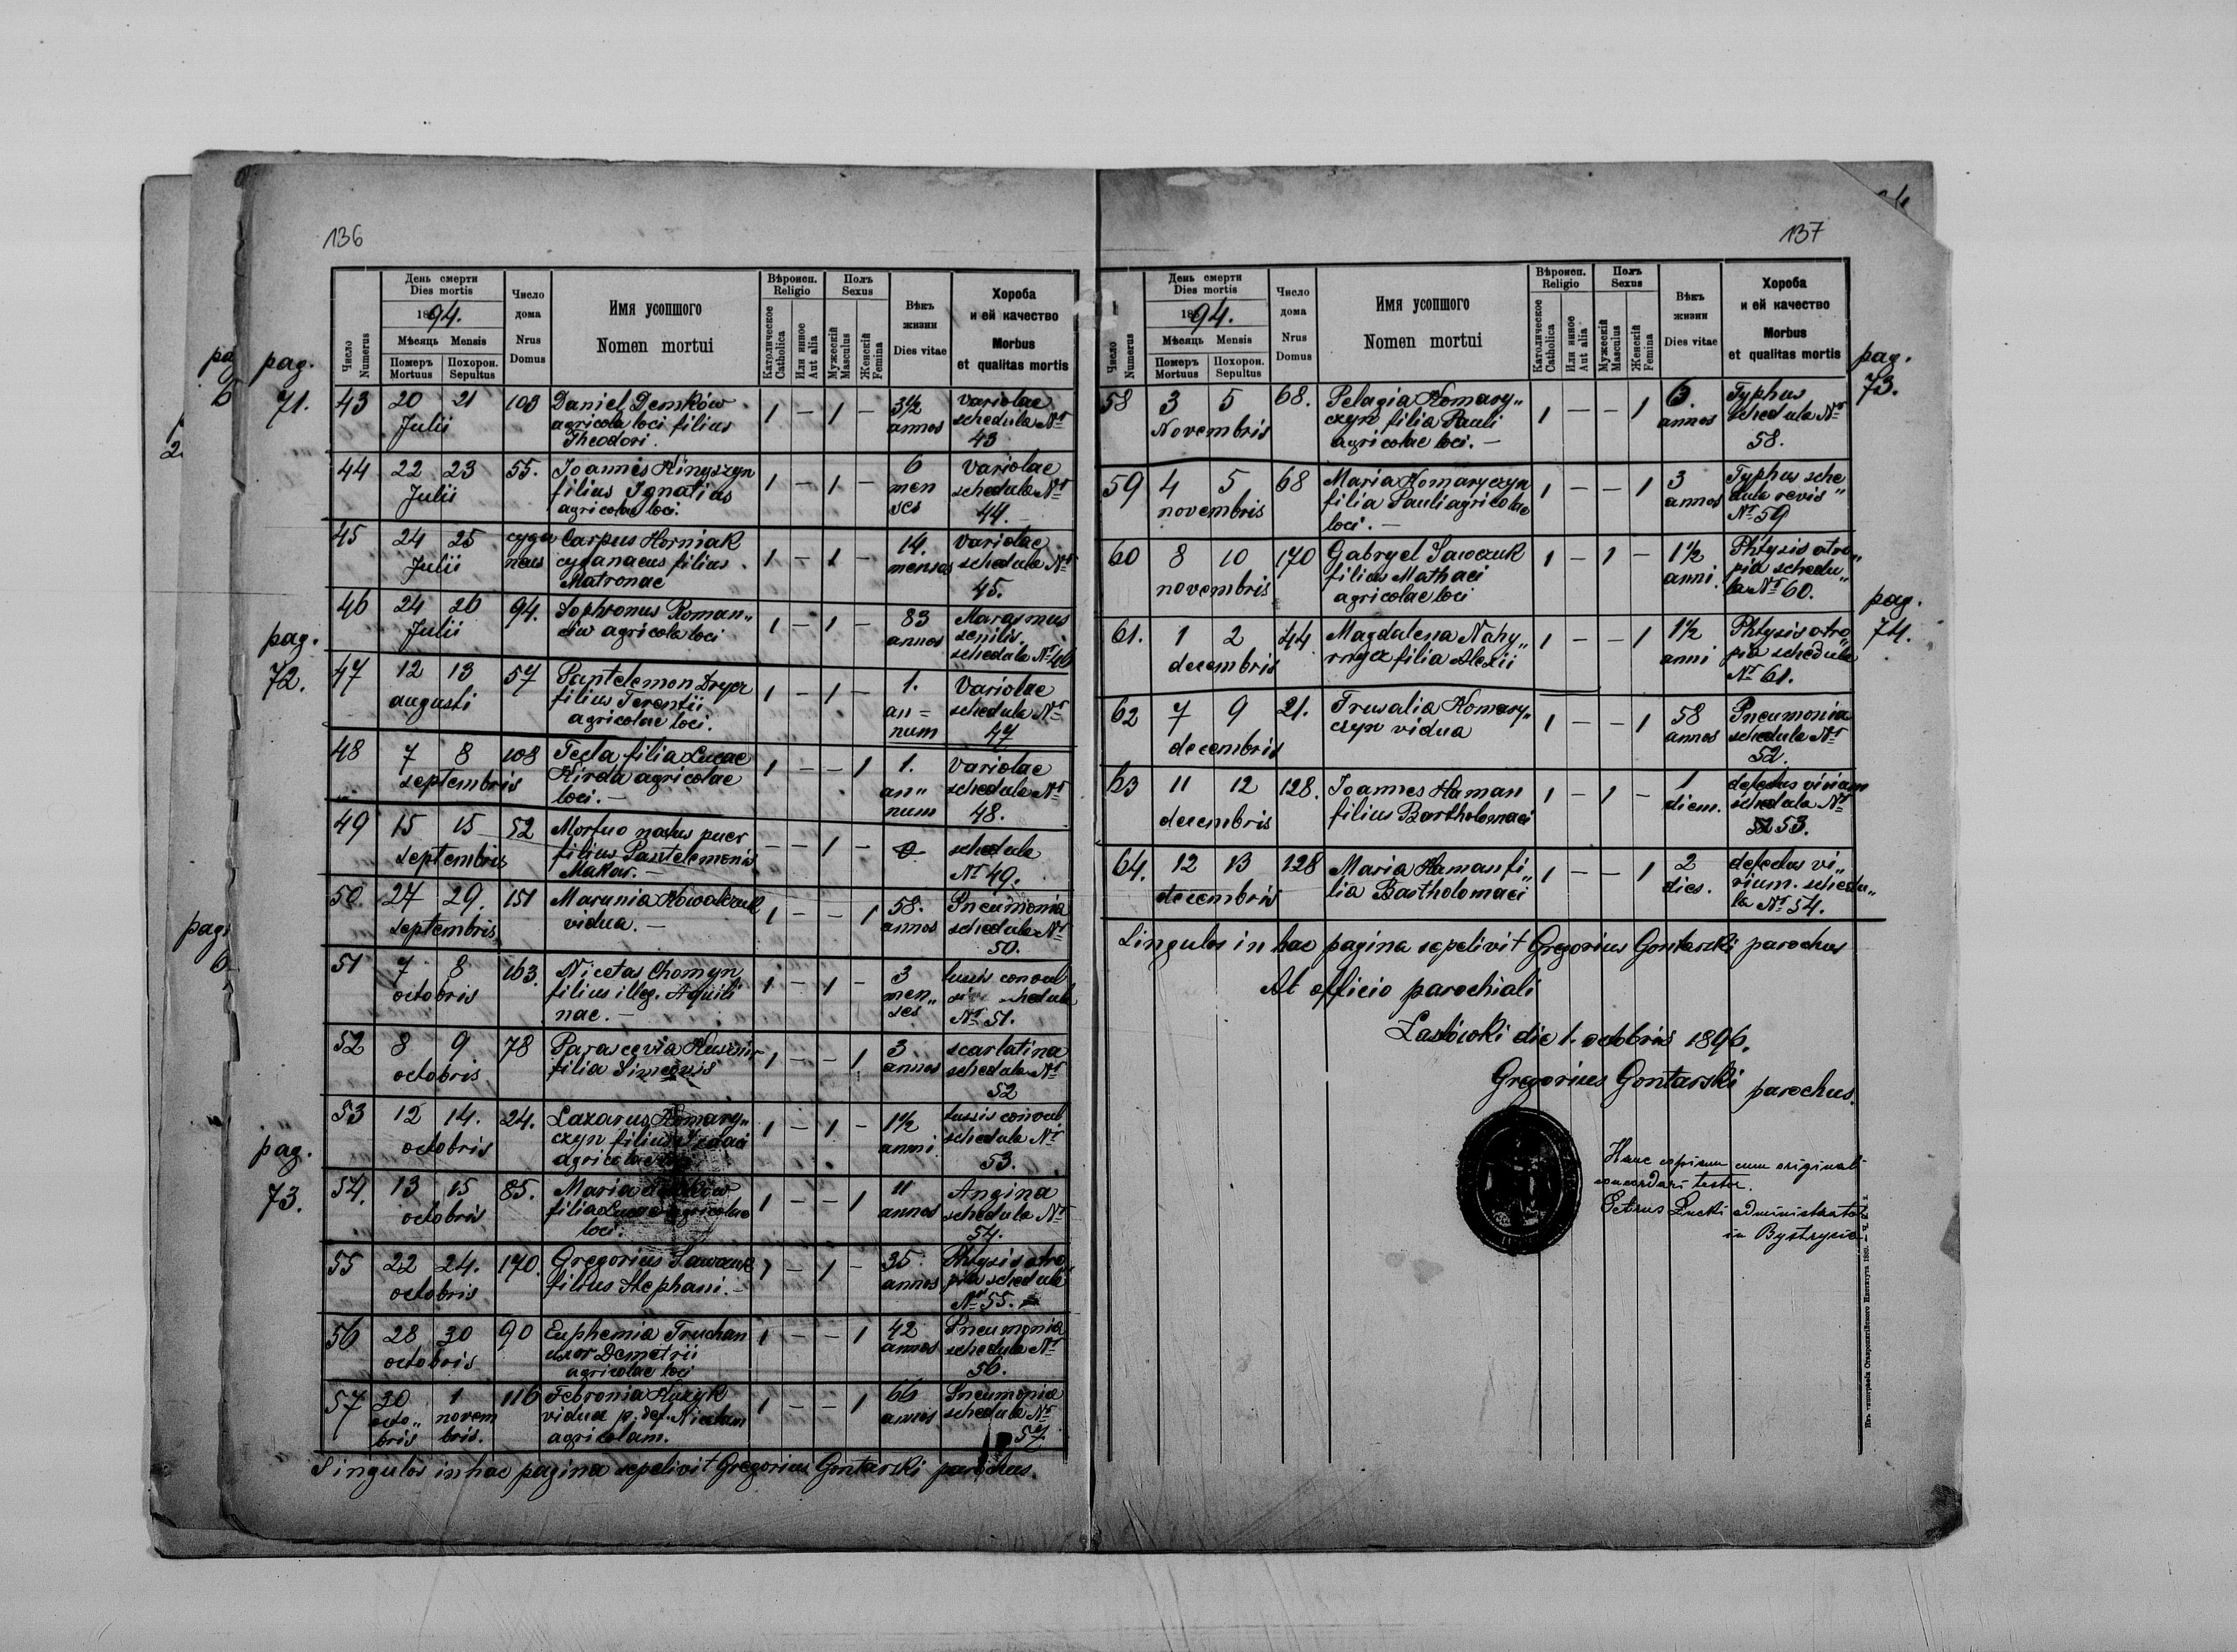 136
День смерти
Dies mortis
1894.
Мѣсяць Mensis
Померъ Похорон.
Mortuus Sepultus
Число
Numerus
Число
дома
Nrus
Domus
Имя усопшого
Nomen mortui
Вѣроисп.
Religio
Католическое
Catholica
Или инное
Aut alia
Полъ
Sexus
Мужескій
Masculus
Женскій
Femina
Вѣкъ
жизни
Dies vitae
Хороба
и ей качество
Morbus
et qualitas mortis
pag.
71.
43 20 21 103 Daniel Demków 1 – 1 – 3½ variolae
Julii agricola loci filius annos schedula Nr
Theodori. 43
44 22 23 55. Joannes Kinyszyn 1 – 1 – 6 variolae
Julii filius Ignatius men schedula Nr
agricolae loci. ses 44.
45 24 25 cyga Carpus Horniak 1 – 1 – 14. variolae
Julii neus cyganaeus filius menses schedula Nr
Matronae 45.
46 24 26 94. Sophronus Roman„ 1 – 1 – 83 Marasmus
Julii ciw agricola loci annos senilis.
schedula Nr 46
pag.
72.
47 12 13 57 Pantelemon Dryer 1 – 1 – 1. Variolae
augusti filius Terentii an= schedula Nr
agricolae loci. num 47
48 7 8 108 Tecla filia Lucae 1 – – 1 1. variolae
septembris Kirda agricolae an„ schedula Nr
loci. – num 48.
49 15 15 52 Mortuo natus puer – – 1 – 0 schedula
septembris filius Pantelemonis Nr 49.
Makar. –
50. 27 29. 151 Marunia Kowalczuk 1 – – 1 58. Pneumonia
septembris vidua. – annos schedula Nr
50.
51 7 8 163. Nicetas Chomyn 1 – 1 – 3 tussis convul
octobris filius illeg. Aquili men„ schedula
nae. – ses Nr 51.
52 8 9 78 Parascevia 1 – – 1 3 scarlatina
octobris filia Simeonis annos schedula Nr
52
53 12 14. 24. Lazarus Komary„ 1 – 1 – 1½ tussis convul
octobris czyn filius anni schedula Nr
agricolae 53.
pag.
73.
54. 13 15 85. Maria 1 – – 1 11 Angina
octobris filia Lucae agricolae annos schedula Nr
loci. 54.
55 22 24. 170. Gregorius Sawczuk 1 – 1 – 35 Phtysis atro„
octobris filius Stephani. – annos pia schedula
Nr 55.
56 28 30 90 Euphemia Truchan 1 – – 1 42 Pneumonia
octobris uxor Demetrii annos schedula Nr
agricolae loci 56.
57 30 1 116 Febronia Huzyk 1 – – 1 66 Pneumonia
octo„ novem vidua p. def. Nicolam annos schedula Nr
bris bris. agricolam. 57
Singulos in hac pagina sepelivit Gregorius Gontarski parochus.
137
День смерти
Dies mortis
1894.
Мѣсяць Mensis
Померъ Похорон.
Mortuus Sepultus
Число
Numerus
Число
дома
Nrus
Domus
Имя усопшого
Nomen mortui
Вѣроисп.
Religio
Католическое
Catholica
Или инное
Aut alia
Полъ
Sexus
Мужескій
Masculus
Женскій
Femina
Вѣкъ
жизни
Dies vitae
Хороба
и ей качество
Morbus
et qualitas mortis
pag.
73.
58 3 5 68. Pelagia Komary„ 1 – – 1 6. Typhus
Novembris czyn filia Pauli annos schedula Nr
agricolae loci. – 58.
59 4 5 68 Maria Komaryczyn 1 – – 1 3 Typhus sche
novembris filia Pauli agricolae annos dula revis„
loci. – Nr 59
60 8 10 170 Gabryel Sawczuk 1 – 1 – 1½ Phtysis atro„
novembris filius Mathaei anni. pia schedu„
agricolae loci la Nr 60.
pag.
74.
61. 1 2 44 Magdalena Nahy„ 1 – – 1 1½ Phtysis atro„
decembris rnyer filia Alexii anni pia schedula
Nr 61.
62 7 9 21. Fruzalia Komary„ 1 – – 1 58 Pneumonia
decembris czyn vidua annos schedula Nr
52.
63 11 12 128. Joannes Haman 1 – 1 – 1 defectus virium
decembris filius Bartholomaei diem. schedula Nr
53.
64. 12 13 128 Maria Haman fi„ 1 – – 1 2 defectus vi„
decembris lia Bartholomaei dies. rium. schedu„
la Nr 54.
Singulos in hac pagina sepelivit Gregorius Gontarski parochus
Ab officio parochiali
Lastówki die 1. octobris 1896.
Gregorius Gontarski parochus.
Hanc copiam cum originali
concordari testor.
Petrus Lucki administrator
in Bystrycia